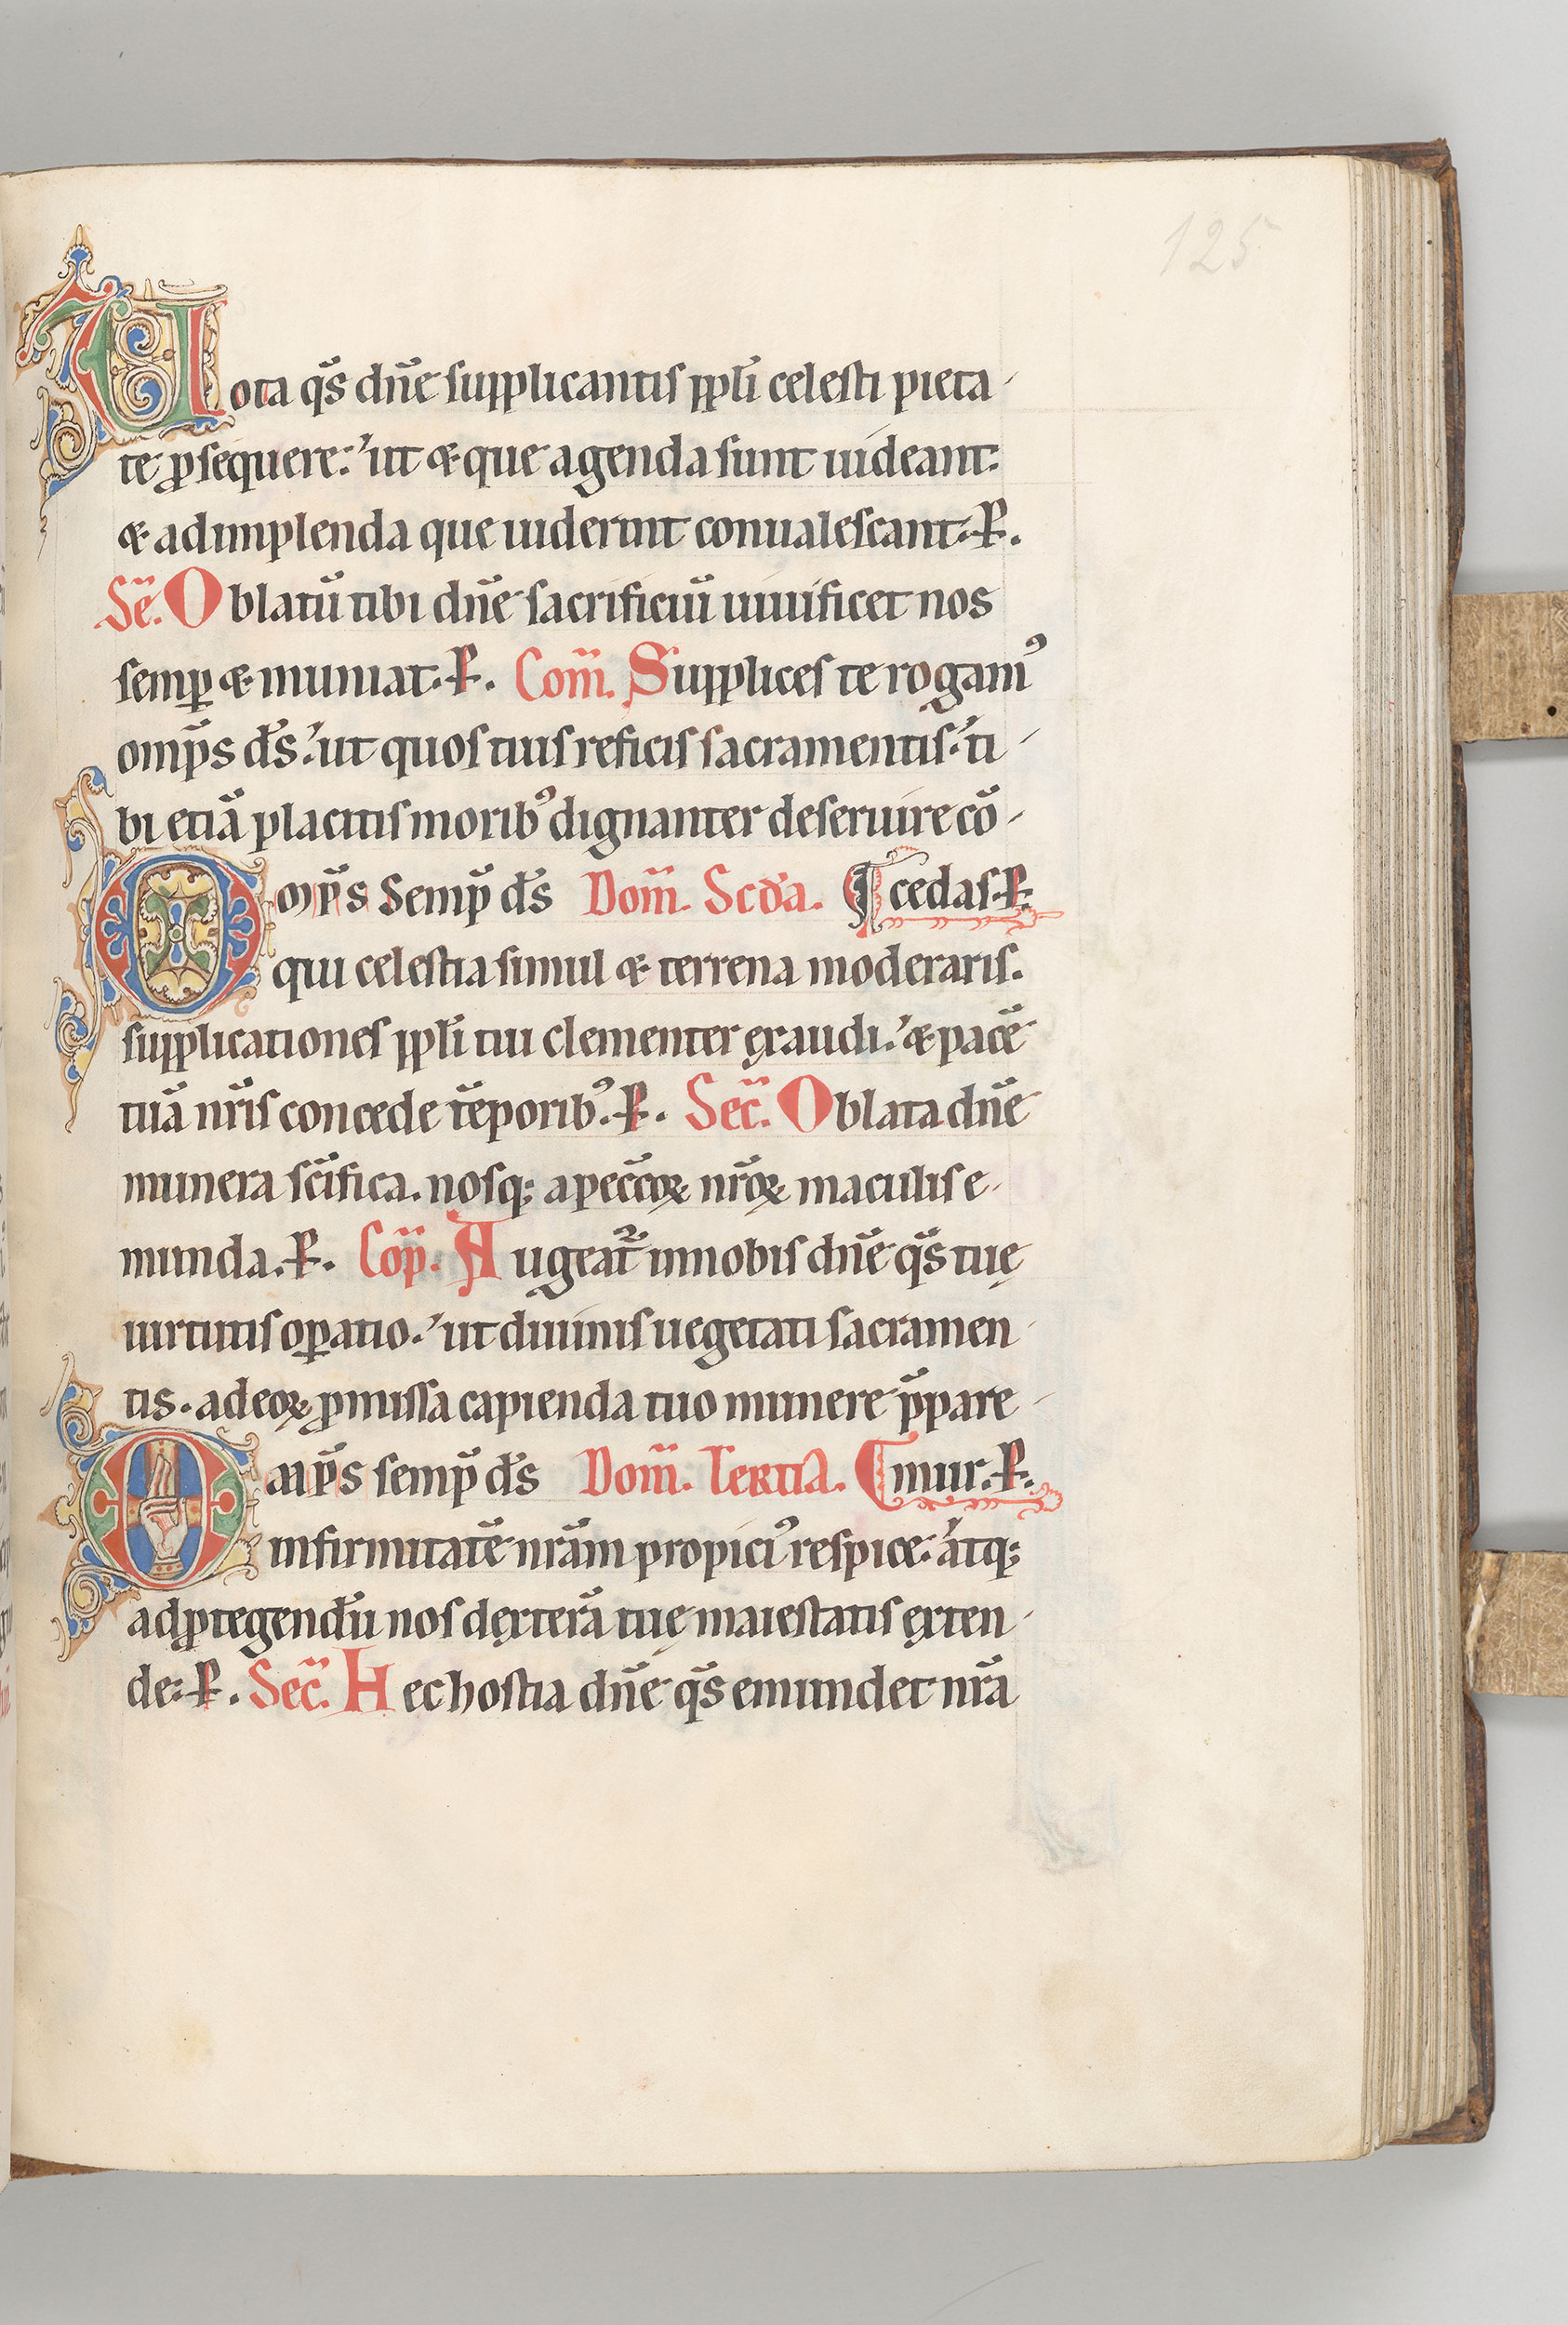 125
Uota q̃s dñe supplicantis ppl̃i celesti pieta-
te ꝓsequere: ut & que agenda sunt uideant:
& adimplenda que uiderint conualescant. P.
Sẽc. Oblatũ tibi dñe sacrificiũ uiuificet nos
semꝑ & muniat. P. Com̃. Supplices te rogamꝰ
omp̃s d̃s: ut quos tuis reficis sacramentis: ti-
bi etiã placitis moribꝰ dignanter deseruire cõ-
Omp̃s semp̃ d̃s Dom̃. Scđa. cedas. P.
qui celestia simul & terrena moderaris.
supplicationes ppl̃i tui clementer exaudi: & pacẽ
tuã nr̃is concede tẽporibꝰ. P. Sec̃. Oblata dñe
munera sc̃ifica. nosq; a pecc̃oꝝ nr̃oꝝ maculis e-
munda. P. Cõp. Augeat᷑ in nobis dñe q̃s tuę
uirtutis oꝑatio: ut diuinis uegetati sacramen-
tis. ad eoꝝ ꝓmissa capienda tuo munere p̃pare-
Omp̃s semp̃ d̃s Dom̃. Tertia. mur. P.
infirmitatẽ nr̃am propiciꝰ respice: atq;
ad ꝓtegendũ nos dexterã tuę maiestatis exten-
de: P. Sec̃. Hec hostia dñe q̃s emundet nr̃a